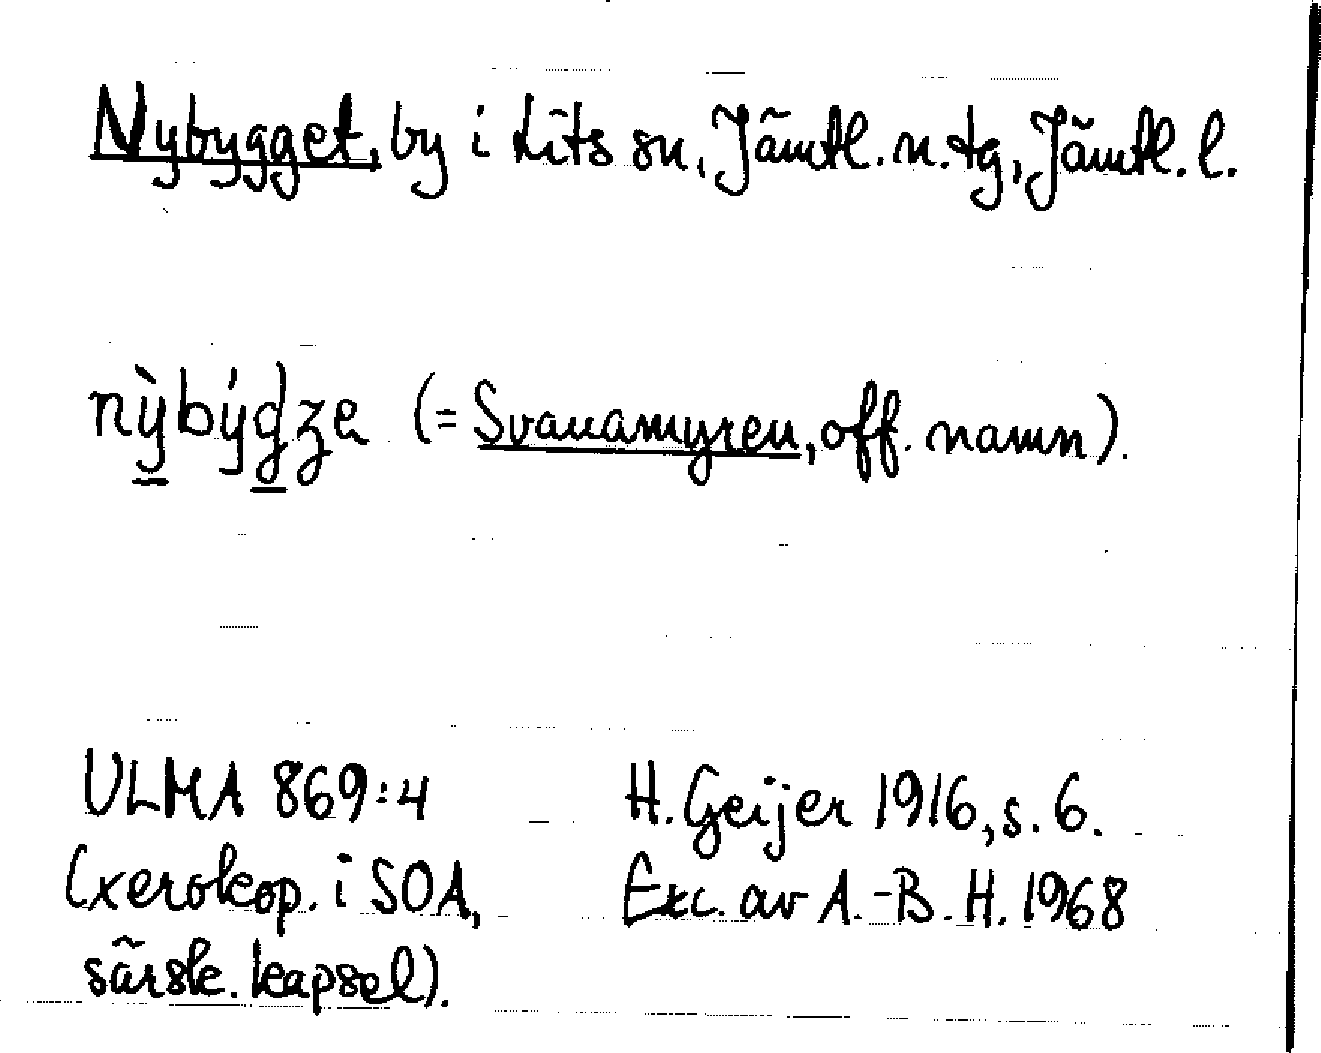 Nybygget, by i Lits sn, Jämtl. n. tg, Jämtl. l.
nỳbýdʒe (= Svanamyren, off. namn).
ULMA 869:4
H. Geijer 1916, s. 6.
(xerokop. i SOA,
Exc. av A.-B. H. 1968
särsk. kapsel).